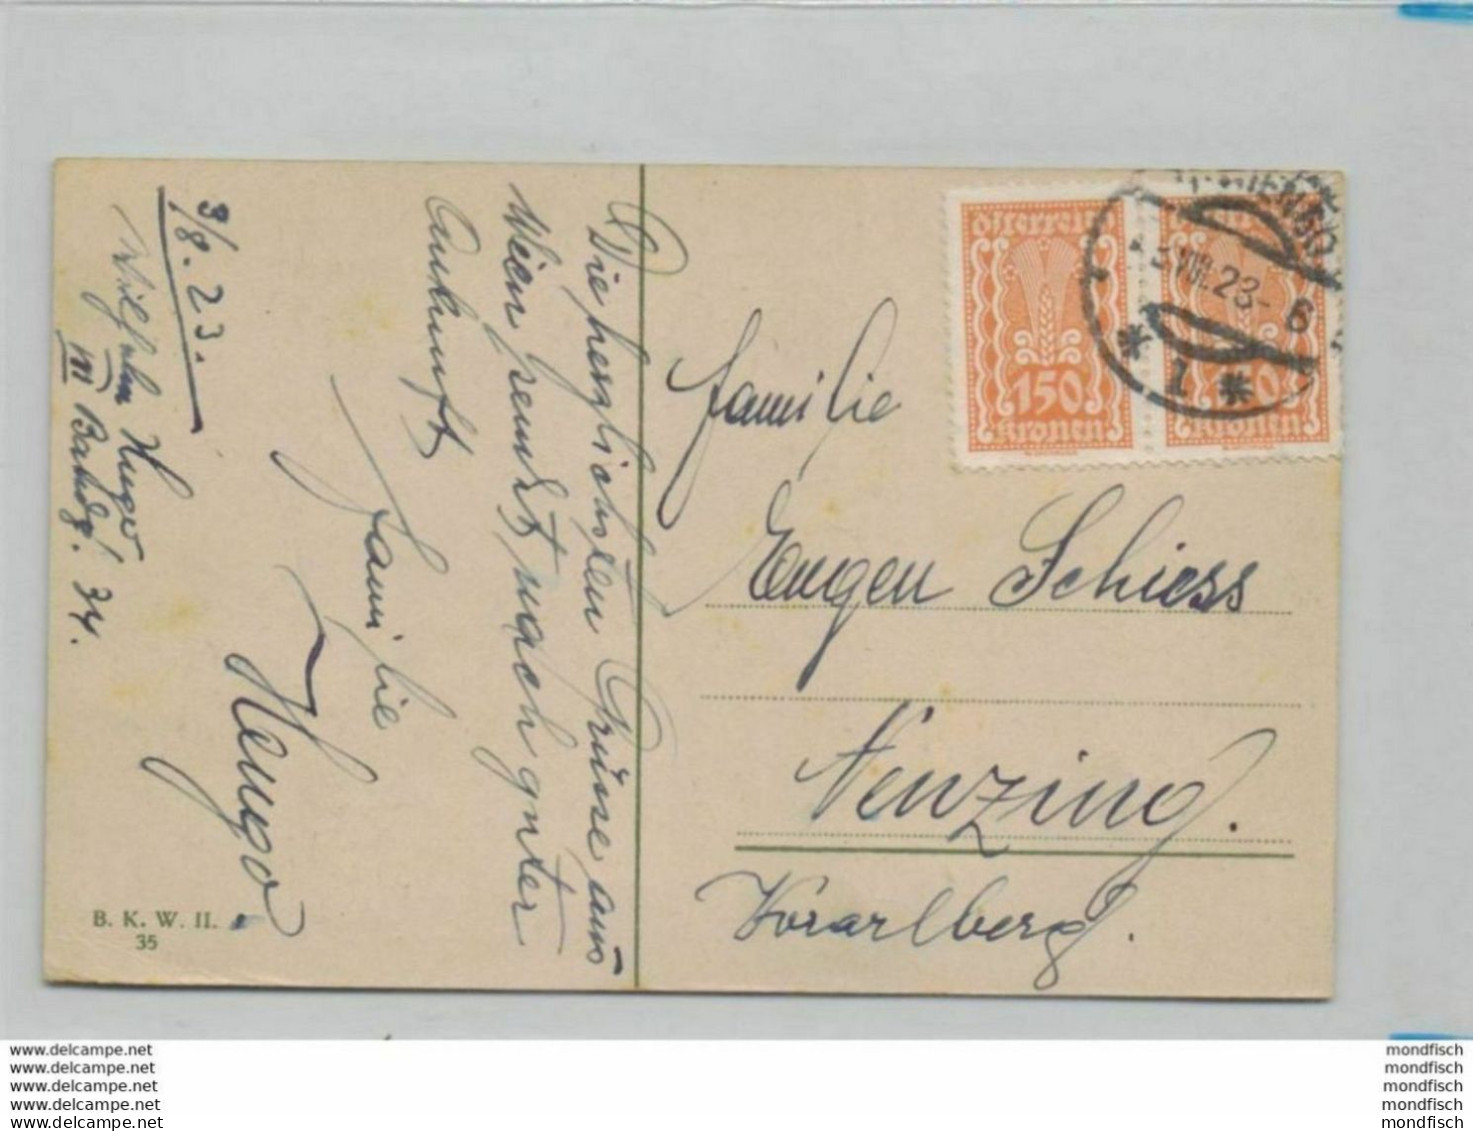 3/8. 23.
Hugo
III
34.
Die herzlichsten Grüsse aus
Wien sendet nach guter
Ankunft
Familie
Hugo
B. K. W. II.
35
österreich
150
kronen
VIII. 23-6
1
Familie
Eugen Schiess
Nenzing.
Vorarlberg.
www.delcampe.net
www.delcampe.net
www.delcampe.net
www.delcampe.net
www.delcampe.net
mondfisch
mondfisch
mondfisch
mondfisch
mondfisch